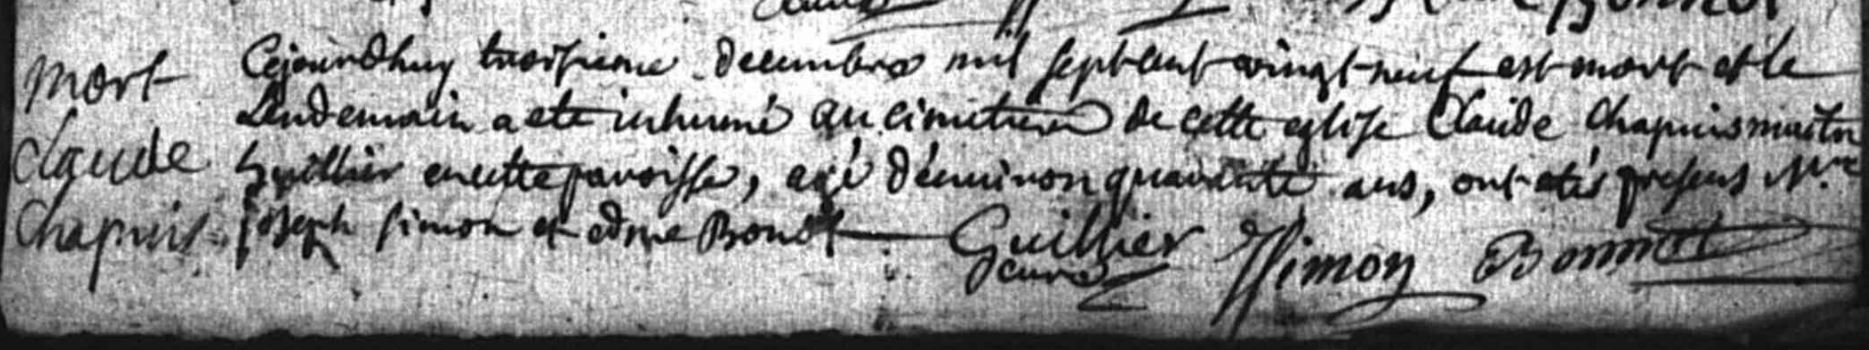 mort
Claude
Chapuis
Cejourdhuy troisieme decembre mil sept cent vingt neuf est mort et le
Lendemain a ete inhumé au cimetiere de cette eglise Claude Chapuis maitre
huillier en cette paroisse, agé d'environ quarante ans, ont étés presens Mre
joseph simon et edme Bonot
Guillier
curé
JSimon
Bonnot